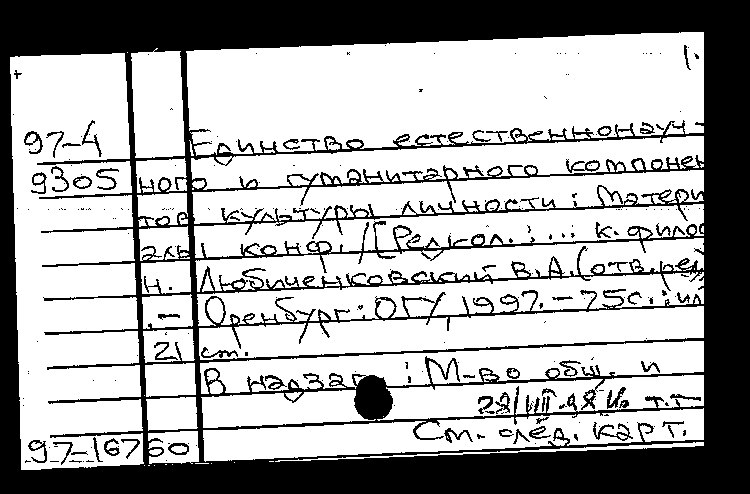 1.
97-4 Единство естественнонауч-
9305 ного и гуманитарного компонен
тов культуры личности: Матери
алы конф. / [Редкол.: ... к. филос
н. Любиченковский В.А. (отв. ред
.- Оренбург: ОГУ, 1997. - 75с.: ил
21 см.
В надзаг.: М-во общ. и
28/VII.98
См. след. карт.
97-16760